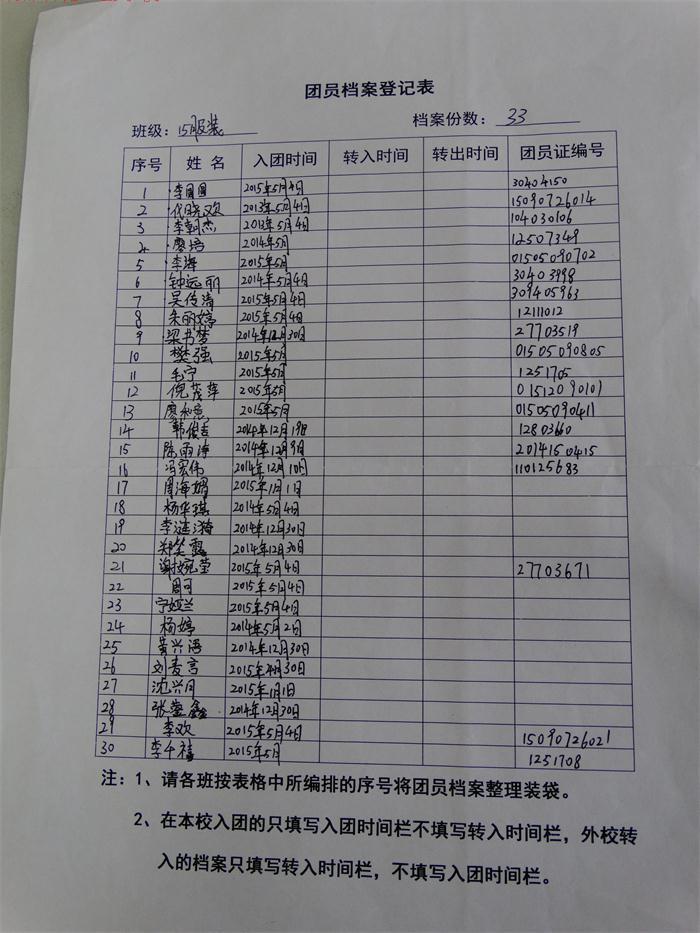 团员档案登记表
班级：15服装 档案份数：33
序号 姓名 入团时间 转入时间 转出时间 团员证编号
1 李圆圆 2015年5月4日 30404150
2 代晓欢 2013年5月4日 15090726014
3 李朝杰 2013年5月4日 104030106
4 廖培 2014年5月 12507349
5 李海 2015年5月 01505090702
6 钟远丽 2014年5月4日 30403998
7 吴传清 2015年5月4日 309405963
8 朱丽婷 2015年5月4日 12111012
9 梁书梦 2014年12月30日 27703519
10 樊强 2015年5月 01505090805
11 毛宁 2015年5月 1251705
12 倪茂萍 2015年5月 01512090101
13 廖 2015年5月 01505090411
14 韩俊吉 2014年12月19日 12803660
15 陈雨 2014年12月9日 2014150415
16 冯宏伟 2014年12月10日 110125683
17 周海媚 2015年1月1日
18 杨华琪 2014年5月4日
19 李涟漪 2014年12月30日
20 郑笑露 2014年12月30日
21 谢婉莹 2015年5月4日 27703671
22 周可 2015年5月4日
23 宁娅兰 2015年5月4日
24 杨婷 2014年5月2日
25 黄兴海 2014年12月30日
26 刘麦亨 2015年4月30日
27 沈兴月 2015年1月1日
28 张蓥鑫 2014年12月30日
29 李欢 2015年5月4日 15090726021
30 李千禧 2015年5月 1251708
注：1、请各班按表格中所编排的序号将团员档案整理装袋。
2、在本校入团的只填写入团时间栏不填写转入时间栏，外校转
入的档案只填写转入时间栏，不填写入团时间栏。